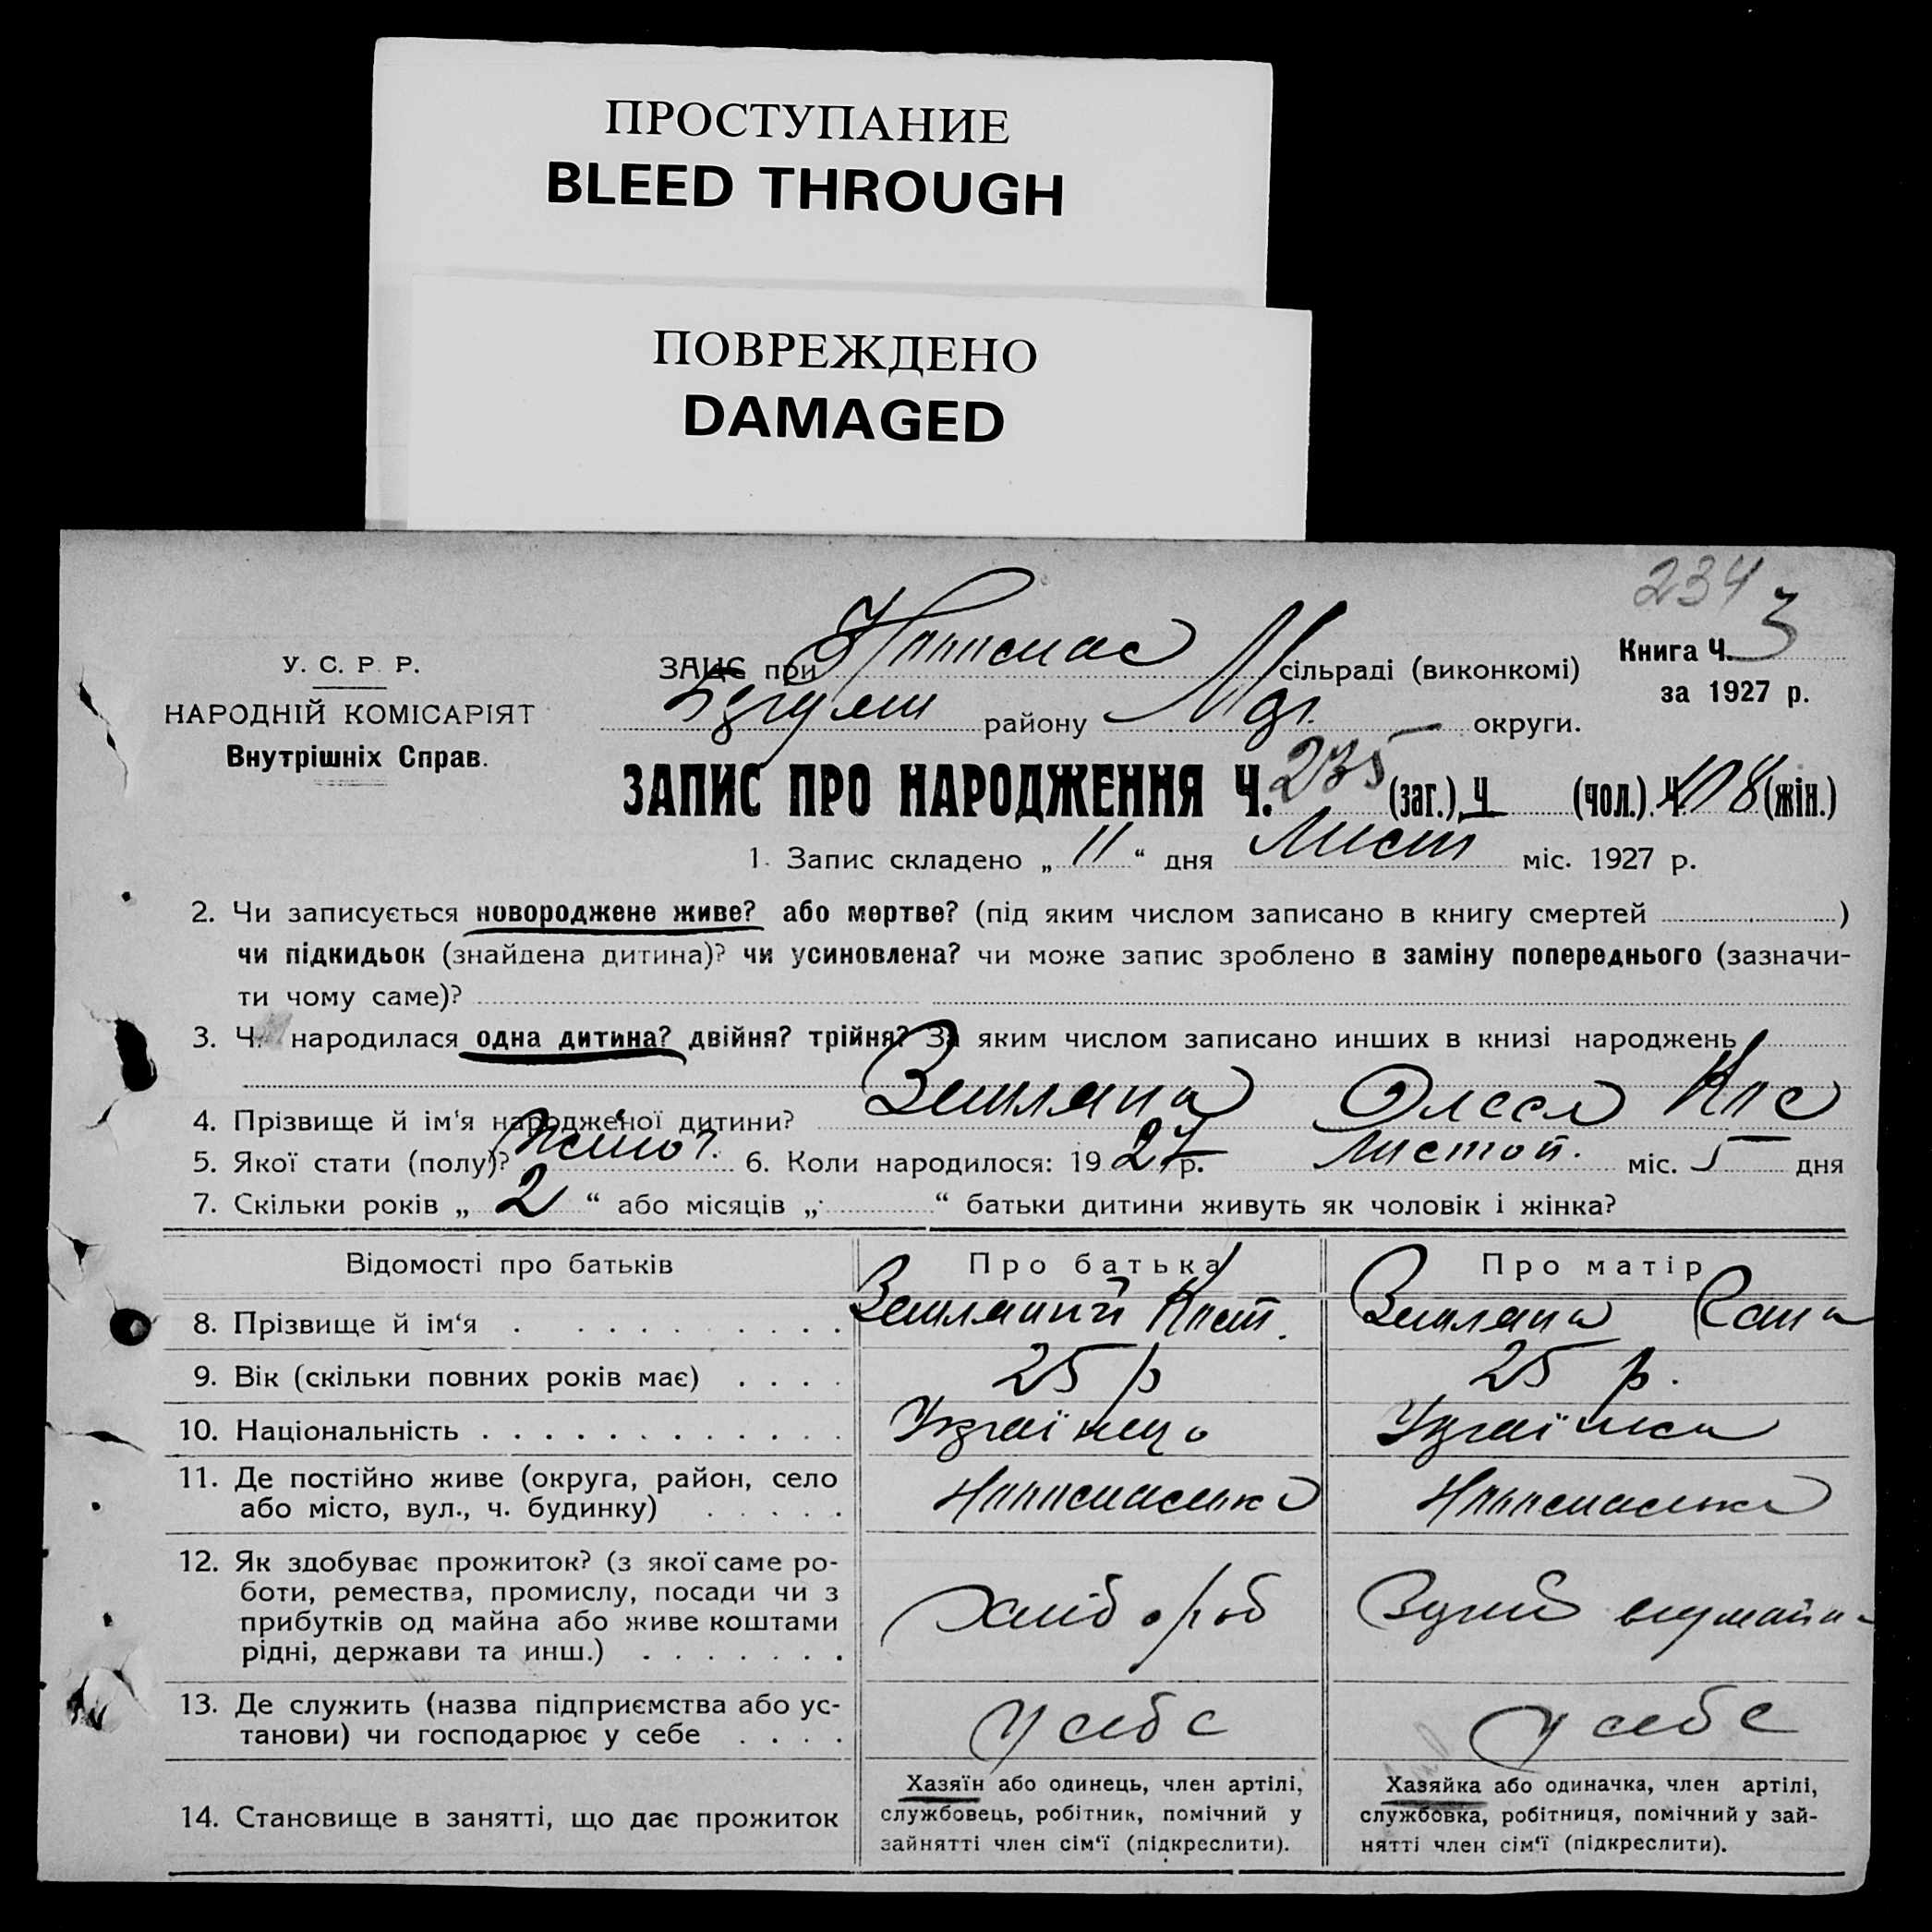 ПРОСТУПАНИЕ
BLEED THROUGH
ПОВРЕЖДЕНО
DAMAGED
234
У. С. Р. Р.
НАРОДНІЙ КОМІСАРІЯТ
Внутрішніх Справ.
ЗАПИС при сільраді (виконкомі)
району округи.
Книга Ч. 3
за 1927 р.
ЗАПИС ПРО НАРОДЖЕННЯ Ч. 235 (заг.) Ч (чол.). Ч. 108 (жін.)
1. Запис складено „ 11 “ дня Лист міс. 1927 р.
2. Чи записується новороджене живе? або мертве? (під яким числом записано в книгу смертей )
чи підкидьок (знайдена дитина)? чи усиновлена? чи може запис зроблено в заміну попереднього (зазначи-
ти чому саме)?
3. Ч народилася одна дитина? двійня? трійня? За яким числом записано инших в книзі народжень
4. Прізвище й ім‘я народженої дитини?
5. Якої стати (полу)? жіноч. 6. Коли народилося: 19 27 р. Листоп. міс. 5 дня
7. Скільки років „ 2 “ або місяців „ “ батьки дитини живуть як чоловік і жінка?
Відомості про батьків Про батька Про матір
8. Прізвище й ім‘я
9. Вік (скільки повних років має) 25 р 25 р.
10. Національність Українець Українка
11. Де постійно живе (округа, район, село
або місто, вул., ч. будинку)
12. Як здобуває прожиток? (з якої саме ро-
боти, ремества, промислу, посади чи з
прибутків од майна або живе коштами
рідні, держави та инш.) хлібороб
13. Де служить (назва підприємства або ус-
танови) чи господарює у себе у себе у себе
14. Становище в занятті, що дає прожиток
Хазяїн або одинець, член артілі,
службовець, робітник, помічний у
зайнятті член сім‘ї (підкреслити).
Хазяйка або одиначка, член артілі,
службовка, робітниця, помічний у зай-
нятті член сім‘ї (підкреслити).